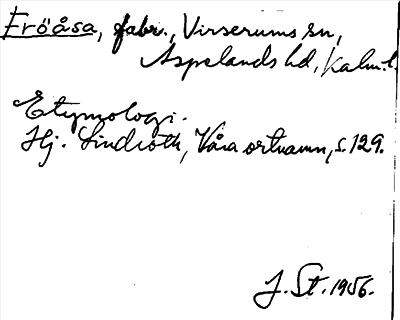 Fröåsa, fabr., Virserums sn,
Aspelands hd, Kalm. l.
Etymologi.
Hj. Lindroth, Våra ortnamn, s. 129.
J. St. 1956.